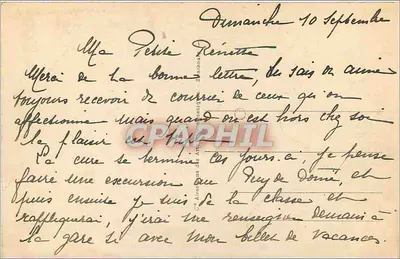 Dimanche 10 Septembre
Ma Petite Renette
Merci de ta bonne lettre, tu sais on aime
toujours recevoir du courrier de ceux qu'on
affectionne mais quand on est hors chez soi
le plaisir est
CPAPHIL
La cure se termine ces jours-ci, je pense
faire une excursion au Puy de Dôme, et
puis ensuite je suis de la classe et
rappliquerai, j'irai me renseigner demain à
la gare si avec mon billet de vacances.